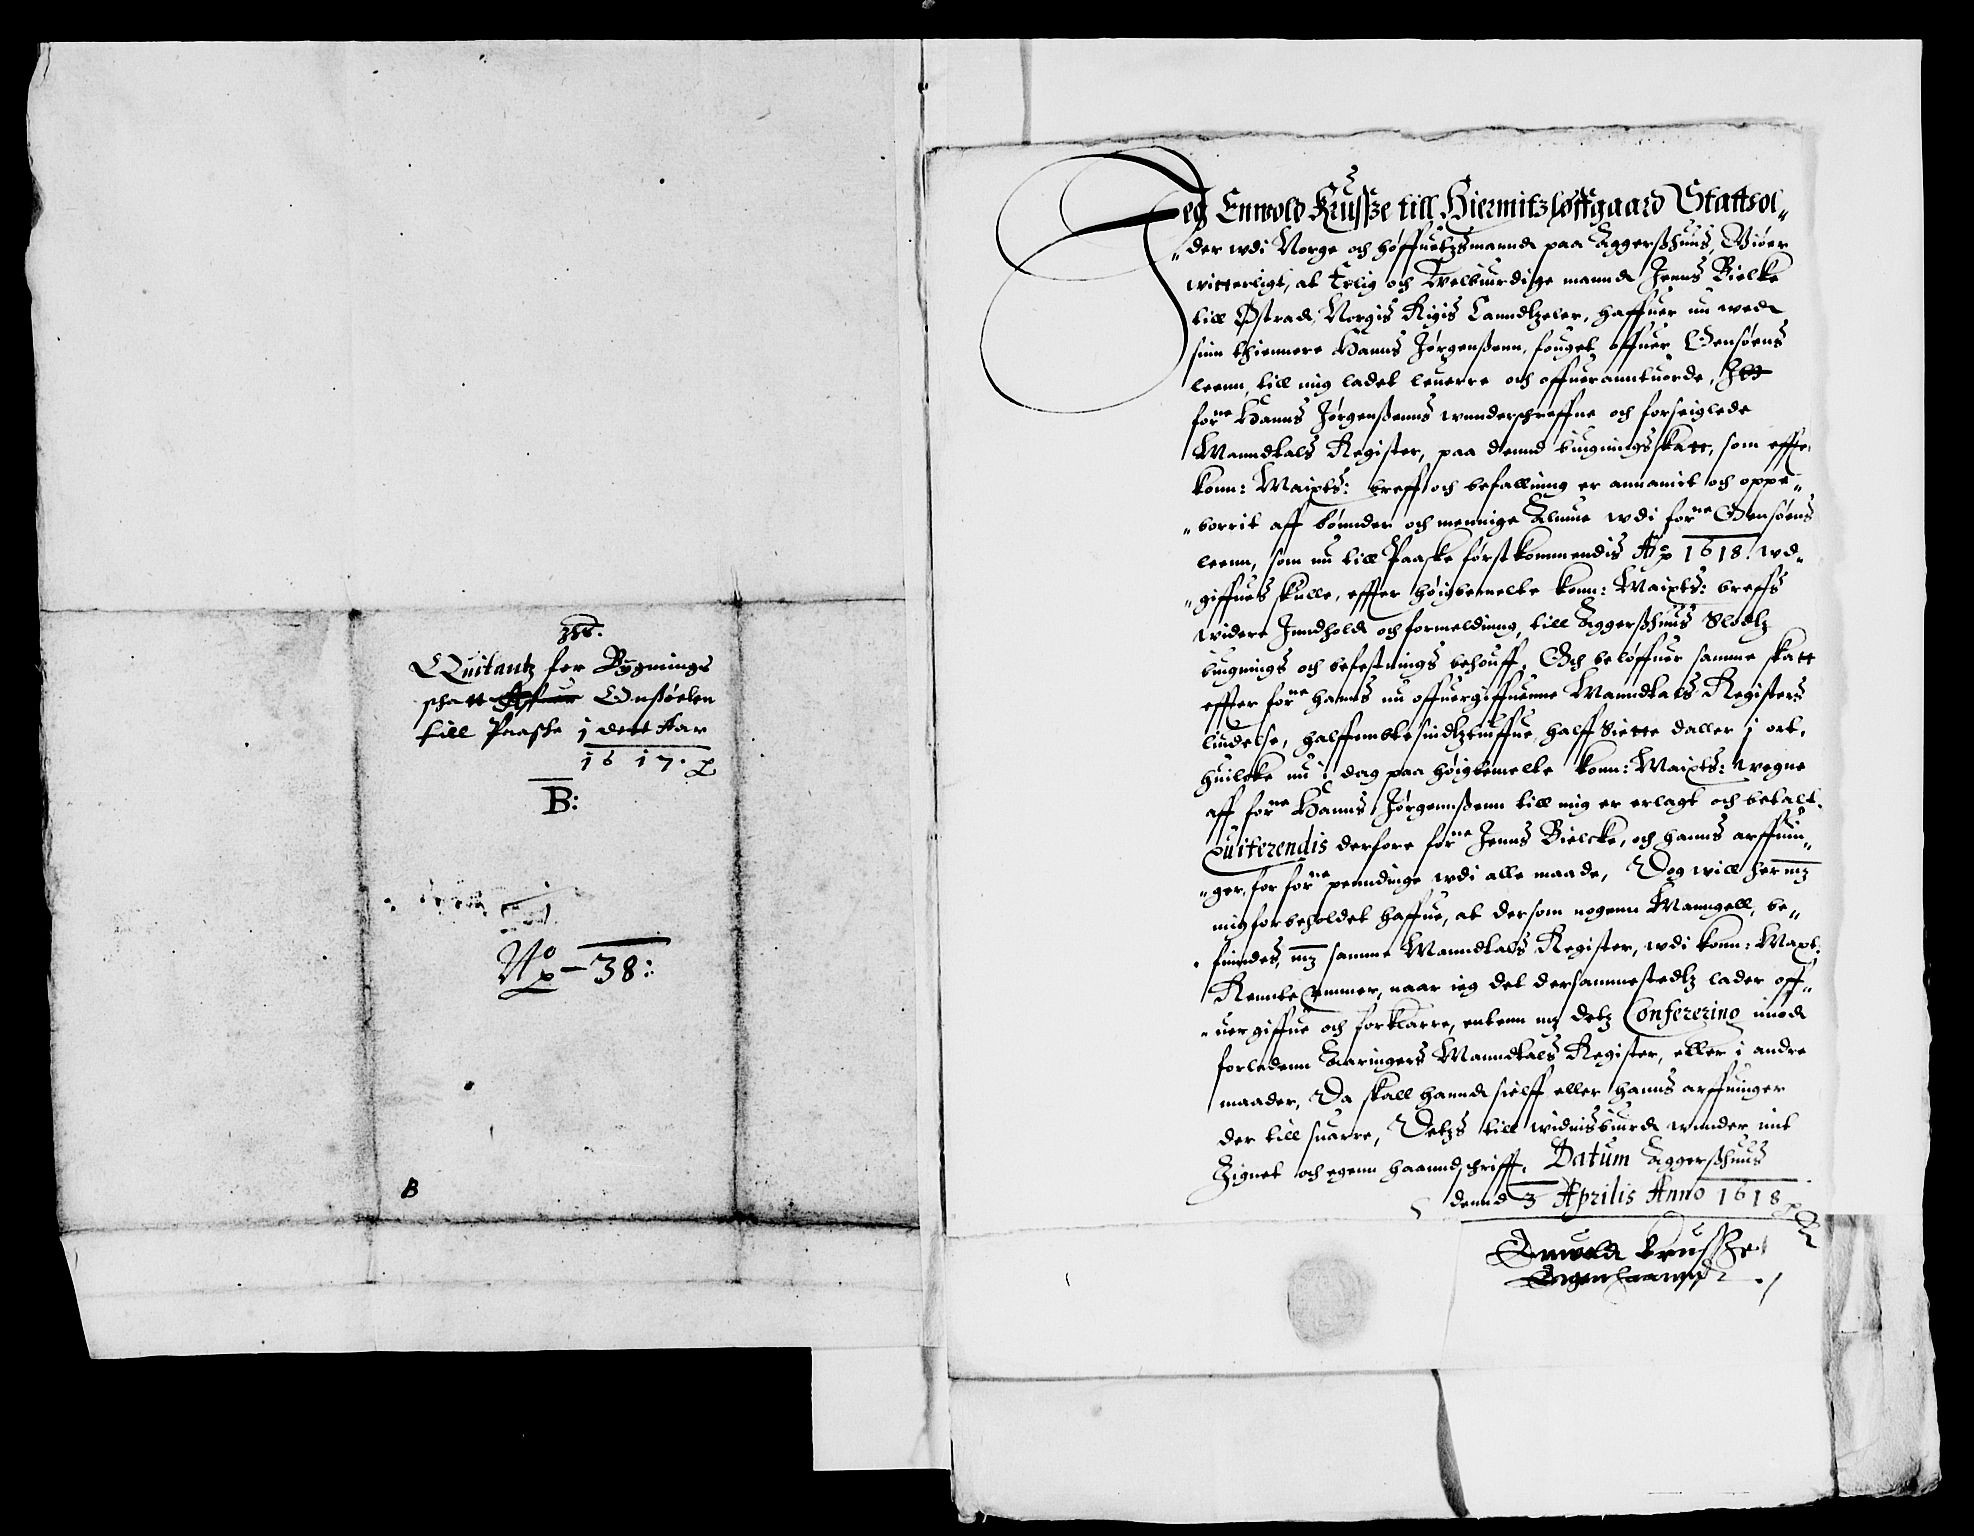 Quitantz for Bygnings
schatt Affuer Onsöelen
till Paaske i dett Aar
1617.
B:
No – 38:
B
Jeg Enwold Krusse till Hiermitzløffgaard Stattol„
„der wdi Norge och høffuetzmannd paa Aggershuus, Giøer
witterligt, at Erlig och Welbiurdige mannd Jenns Bielke
till Østrad, Norgis Rigis Canndtzeler, haffuer nu wed
sinn thiennere Hanns Jørgenssenn, fouget offuer Onsøens
leenn, till mig ladet leuerre och offuerantuorde,
forne Hanns Jørgenssenns wnnderschreffne och forseiglede
Manndtals Register, paa dennd bugningsskatt, som effter
konn: Maiyts: breff och befallning er annamit och oppe„
„borrit aff bønnder och mennige Almue wdi forne Onsøens
leenn, som nu till Paaske først kommendis Ao 1618 wd„
„giffues skulle, effter høigbemelte konn: Maiyts: breffs
widere Inndhold och formelding, till Aggershuus Slodtz
bugnings och befestnings behouff, Och beløffuer samme skatt
effter forne hanns nu offuergiffuenne Manndtals Registers
liudelse, halfffembtesindtztiuffue, halff Siette daller i ort,
huilcke nu i dag paa høigbemelte konn: Maiyts: wegne
aff forne Hanns Jørgennssenn till mig er erlagt och betalt.
Quiterendis derfore forne Jenns Bielcke, och hanns arffuin„
„ger, for forne penndinge wdi alle maade, Dog will her mz
mig forbeholdet haffue, at dersom nogenn Manngell, be„
„findes, mz samme Manndtals Register, wdi konn: Mayt:
Rennte Cammer, naar ieg det dersammestedtz lader off„
„uergiffue och forklarre, entenn mz detz Conferering imod
forledenn Aaringers Manndtals Register, eller i andre
maader, Da skall hannd sielff eller hanns arffuinger
der till suarre, Detzs till widnisbiurd wnnder mit
Zignet och egenn haanndschrifft. Datum Aggershuus
dennd 3 Aprilis Anno 1618
Enwold Krusse
Egen haannd